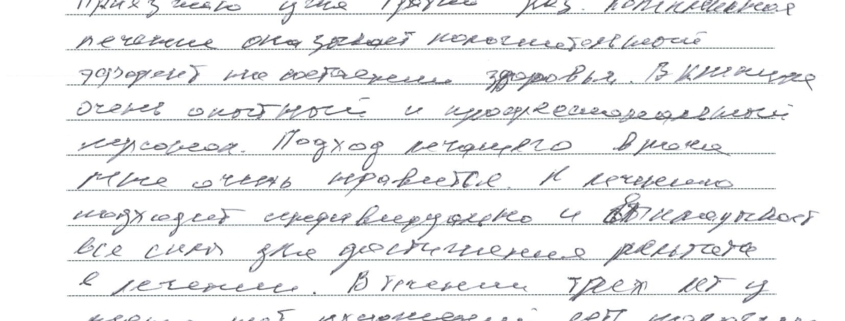 Приезжаю уже третий раз. Комплексное
лечение оказывает положительный
эффект на состоянии здоровья. В клинике
очень опытный и профессиональный
персонал. Подход лечащего врача
мне очень нравится. К лечению
подходит индивидуально и выкладывает
все силы для достижения
в лечении. В течении трех лет у